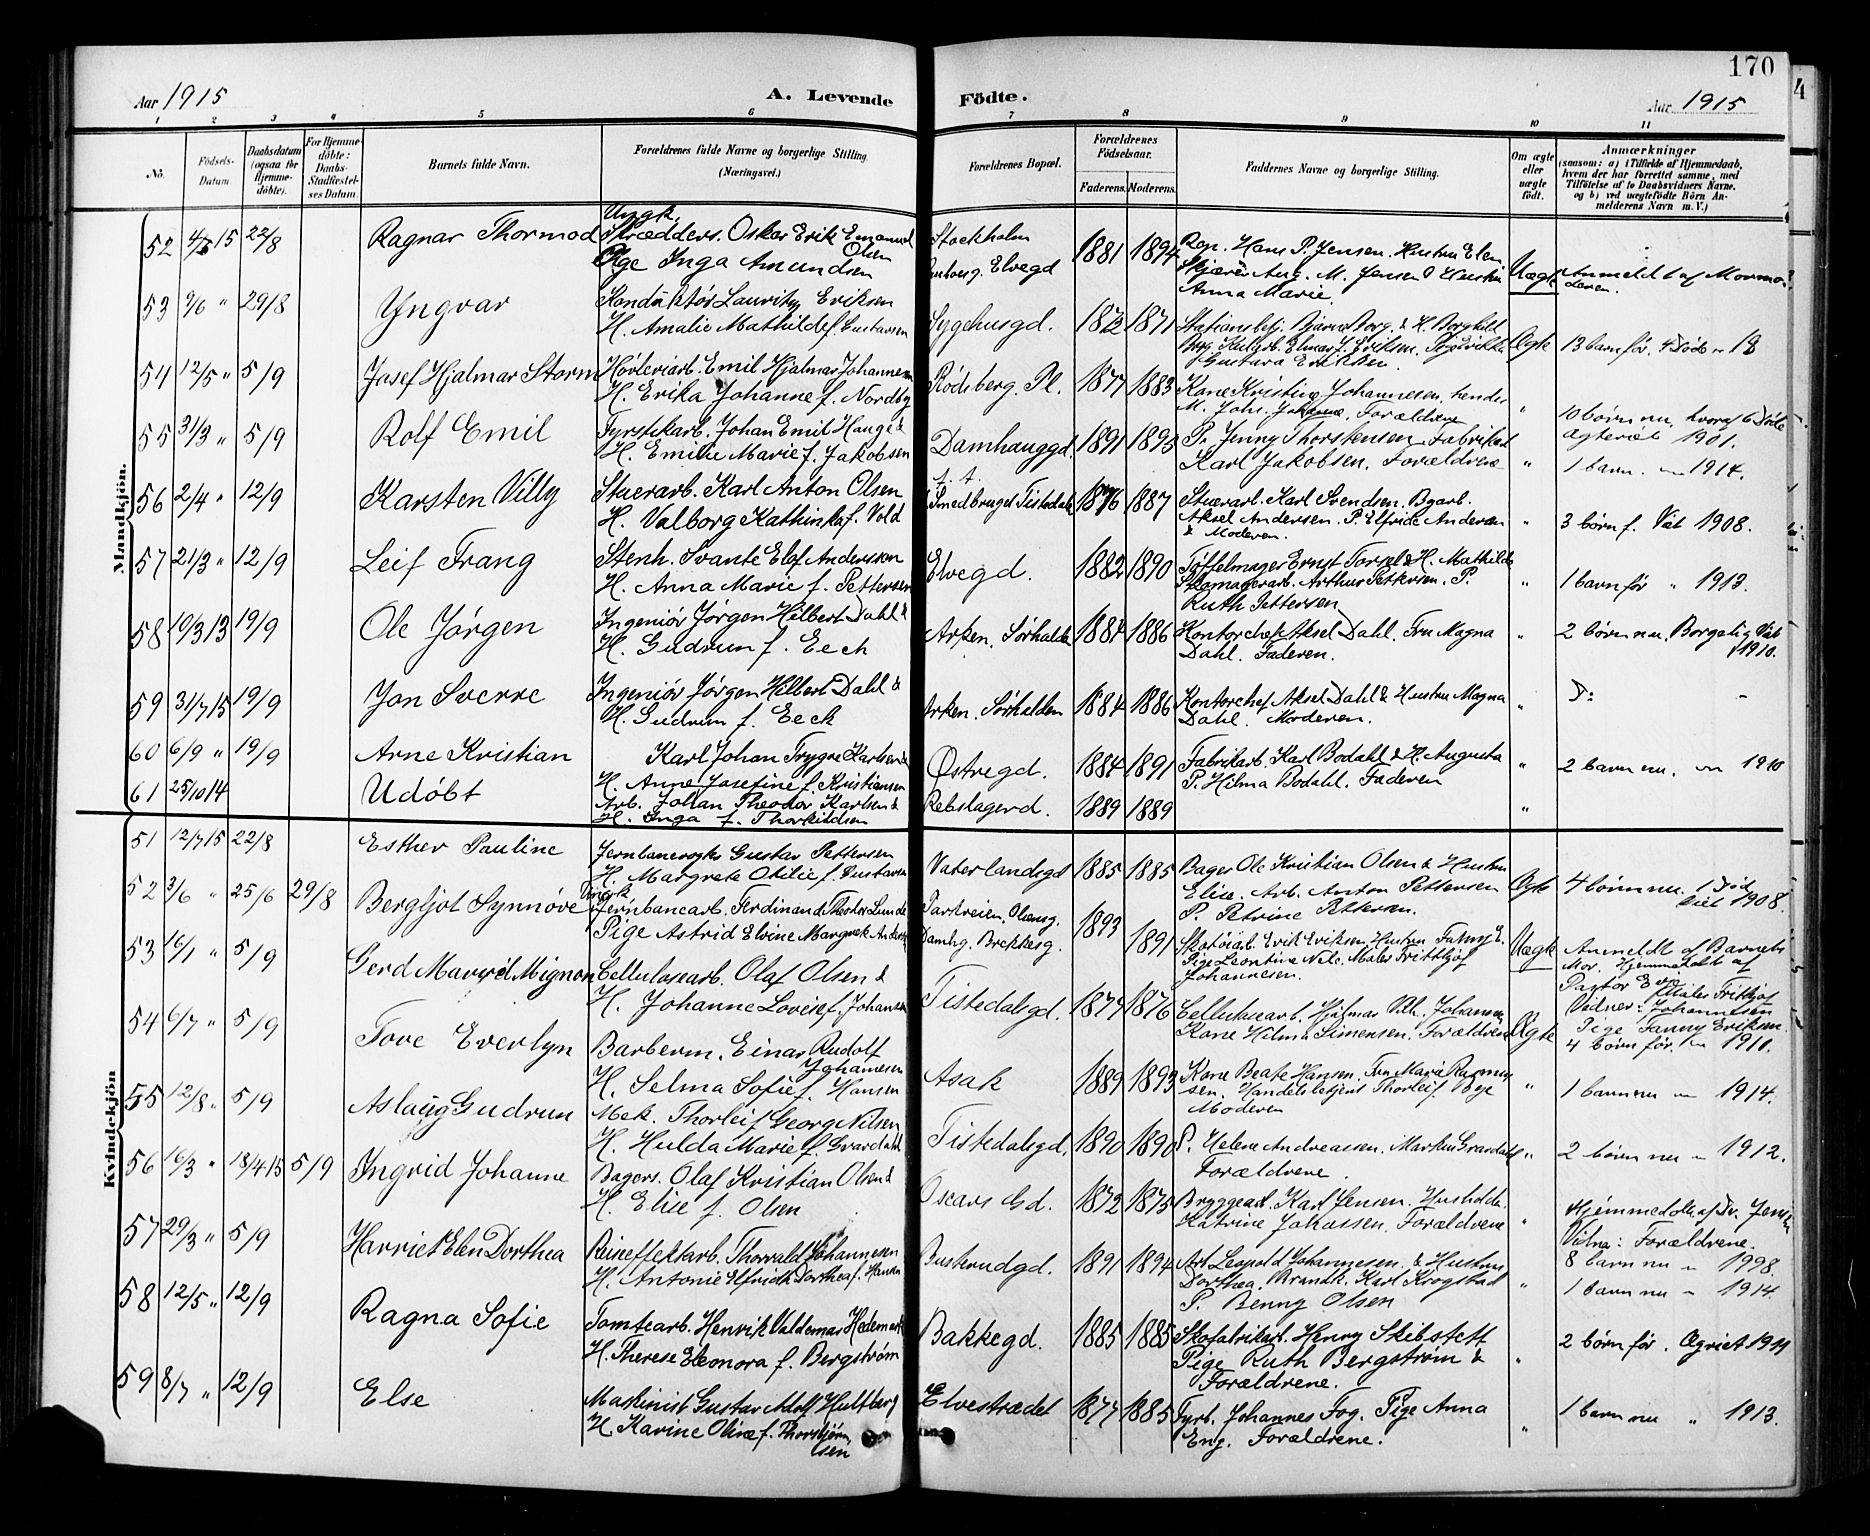 170
Aar 1915
A. Levende Födte.
Aar 1915
1 2 3 4 5 6 7 8 9 10 11
No.
Födsels-Datum.
Daabsdatum (ogsaa for Hjemme-döbte).
For Hjemme-döbte: Daabs-Stadfæstel-ses Datum.
Barnets fulde Navn.
Forældrenes fulde Navne og borgerlige Stilling. (Næringsvei.)
Forældrenes Bopæl.
Forældrenes Födselsaar.
Faderens. Moderens.
Faddernes Navne og borgerlige Stilling.
Om ægte eller uægte födt.
Anmærkninger
(saasom: a) i Tilfælde af Hjemmedaab, hvem der har forrettet samme, med Tilföielse af to Daabsvidners Navne, og b) ved uægtefödte Börn An-melderens Navn m. V.)
Mandkjön.
52 4/5 15 22/8 Ragnar Thormod
Ungk. Skrædders. Oskar Erik Emanuel Olsen
Pige Inga Amundsen
Stockholm
Elvegd
1881 1894
Rep. Hans P. Jensen. Hustru Elen
Aug. M. Jensen & Hustru
Anna Marie.
Uægte
Anmeldt af Mormo-deren.
53 9/6 " 29/8 Yngvar
Konduktør Lauritz Eriksen
H. Amalie Mathilde f. Gustavsen
Sygehusgd.
1872 1871
Stationsbetj. Bjarne Borg. & H. Borghild
Borg
Gustava Eriksen.
Ægte
13 barn før. 4 Døde
54 12/5 " 5/9 Josef Hjalmar Storm
Høvleriarb. Emil Hjalmar Johannesen
H. Erika Johanne f. Nordby
Rødsberg. Pl.
1877 1883
Kone Kristine Johannesen, hendes
M. Johs. Johanne. Forældrene
"
10 børn nu, hvoraf 6 Døde
Ægteviet 1901.
55 31/3 " 5/9 Rolf Emil
Fyrstikarb. Johan Emil Hauge &
H. Emilie Marie f. Jakobsen
Damhauggd.
1891 1893
P. Jenny Thorstensen. Fabrikarb
Karl Jakobsen. Forældrene
"
1 barn. " 1914.
56 2/4 " 12/9 Karsten Villy
Stuerarb. Karl Anton Olsen
H. Valborg Kathinka f. Vold
Smedbruget Tistedalen
1876 1887
Stuerarb. Karl Svendsen. Bgarb.
Aksel Andersen. P. Elfride Andersen
& Moderen.
"
3 børn f. Viet 1908.
57 21/3 " 12/9 Leif Frang
Stenh. Svante Elof Andersson
H. Anna Marie f. Pettersen
Elvegd.
1882 1890
Tøffelmager Ernst Torsel & H. Mathilde
Skomagerarb. Arthur Pettersen. P.
Ruth Pettersen
"
1 barn før " 1913.
58 10/3 13 19/9 Ole Jørgen
Ingeniør Jørgen Hilbert Dahl &
H. Gudrun f. Eeck
Arken. Sørhalden
1884 1886
Kontorchef Aksel Dahl. Fru Magna
Dahl. Faderen.
"
2 børn nu. Borgelig Viet
1910.
59 31/7 15 19/9 Jon Sverre
Ingeniør Jørgen Hilbert Dahl &
H. Gudrun f. Eeck
Arken. Sørhalden
1884 1886
Kontorchef Aksel Dahl & Hustru Magna
Dahl. Moderen.
"
D:
60 6/9 " 19/9 Arne Kristian
Karl Johan Trygve Karlsen &
H. Anne Josefine f. Kristiansen
Østregd.
1884 1891
Fabrikarb. Karl Bodahl & H. Augusta
P. Hilma Bodahl. Faderen
"
2 barn nu. " 1910
61 25/10 14 Udöbt
Arb. Johan Theodor Karlsen &
H. Inga f. Thorkildsen
Rebslagerd.
1889 1889
"
Kvindekjön
51 12/7 15 22/8 Esther Pauline
Jernbanevogter Gustav Pettersen
H. Margrete Otilie f. Gustavsen
Vaterlandsgd
1885 1885
Bager Ole Kristian Olsen & Hustru
Elise. Arb. Anton Pettersen
P. Petrine Pettersen.
Ægte
4 børn nu. 1 Død
Viet 1908.
52 3/6 " 25/6 29/8 Bergljot Synnöve
Ungk.
Jernbanearb. Ferdinand Theodor Lunde
Pige Astrid Elvine Margrete
Damhg. Brekkerg.
1893
1891
Skotøiarb. Erik Eriksen. Hustru Fanny E.
Pige Leontine Maler Frittkjof
Johannesen.
Uægte
Anmeldt af Barnets
Mor. Hjemmedøbt af
Pastor Evje
Vidner: Maler Fritkjof Johannesen
Pige Fanny Eriksen
53 16/1 " 5/9 Gerd Mignon
Cellulosearb. Olaf Olsen &
H. Johanne Lovise f. Johansen
Tistedalsgd.
1877 1876
Cellulosearb. Hjalmar Vilh. Johansen
Kone Hilma Simensen. Forældrene
Ægte
4 børn før. " 1910.
54 6/7 " 5/9 Tove Everlyn
Barberm. Einar Rudolf Johannesen
H. Selma Sofie f. Hansen
Asak
1889 1893
Kone Beate Hansen. Fru Marie Rasmus-
sen. Handelsbetjent Thorleif Bye
Moderen
"
1 barn nu " 1914.
55 12/8 " 5/9 Aslaug Gudrun
Mek. Thorleif Georg Nilsen
H. Hulda Marie f. Gravdahl
Tistedalsgd.
1890 1890
P. Helene Andreassen. Martin Gravdahl
Forældrene
"
2 børn nu " 1912.
56 16/3 " 18/4 15 5/9 Ingrid Johanne
Bagers. Olaf Kristian Olsen &
H. Elise f. Olsen
Oscars Gd.
1872 1875
Bryggearb. Karl Jensen. Husholdn.
Katrine Johassen. Forældrene
"
Hjemmedøbt af Dr. Jensen
Vidne: Forældrene.
8 barn nu " 1998.
57 29/3 " 5/9 Harriet Elen Dorthea
Thorvald Johannesen
H. Antonie Elfride Dorthea f. Hansen
Buskrudgd.
1891 1894
Arb. Leopold Johannesen. & Hustru
Dorthea. Brandk. Karl Krogstad
P. Benny Olsen
"
1 barn nu " 1914.
58 12/5 " 12/9 Ragna Sofie
Tomtearb. Henrik Valdemar Hedemark
H. Therese Eleonora f. Bergstrøm
Bakkegd.
1885 1885
Skofabrikarb. Henny Skibstett
Pige Ruth Bergstrøm &
Forældrene.
"
2 børn før.
59 8/7 " 12/9 Else
Maskinist Gustav Adolf Hultberg
H. Karine Oline f. Thorbjørnsen
Elvestrædet
1877 1885
Fyrb. Johannes Fog. Pige Anna
Eng. Forældrene.
"
1 barn nu " 1913.